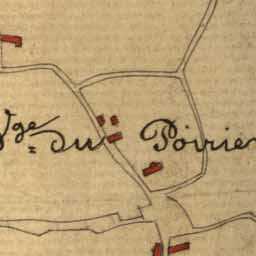 Vge du Poirie